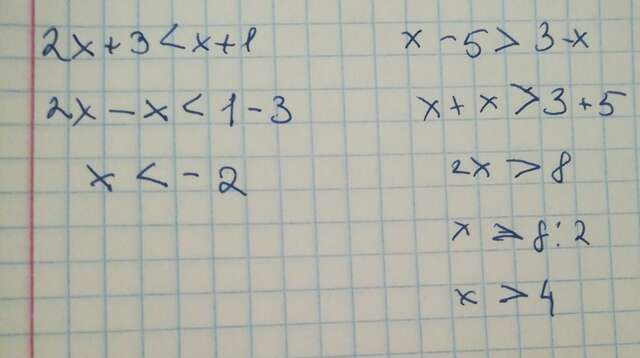 2x+3<x+1
2x-x<1-3
x<-2
x-5>3-x
x+x>3+5
2x>8
x>8:2
x>4